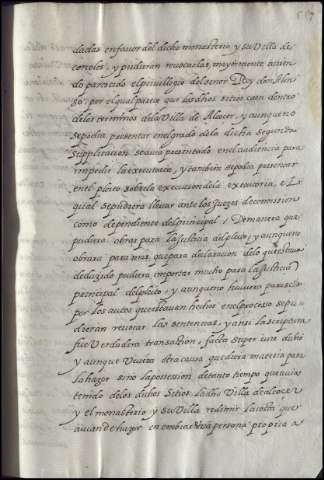 dadas en favor del dicho monasterio y su Villa de
y pudieran revocarlas, mayormente avien
do parecido el privillegio del señor Rey don Alon
so, por el qual parece que los dhos sitios caen dentro
de los terminos de la Villa de Alcocer, y aunque no
se podia presentar en el grado de la dicha segunda
supplicacion se avia presentado en la audiencia para
impedir la executoria, y tambien se podia presentar
en el pleito sobre la execucion de la executoria, el
qual se pudiera llevar ante los juezes de comission
como dependiente del principal, De manera que
pudiera obrar para la justicia del pleito, y aunque no
obrara para mas que para declaracion de lo questava
deduzido pudiera importar mucho para la justicia
principal del pleito, y aunque no huviera parescido
por los autos que estavan hechos en el proceso se pu
dieran revocar las sentencias, y ansi la scriptura
fue Verdadera transaction, facta super re dubia
y aunque no uviera otra causa que diera materia para
la hazer sino la possession de tanto tiempo que avia
tenido de los dichos Sitios la dha Villa de Alcocer
y el monasterio y su Villa redimir la costa que
avian de hazer en embiar una persona propria a